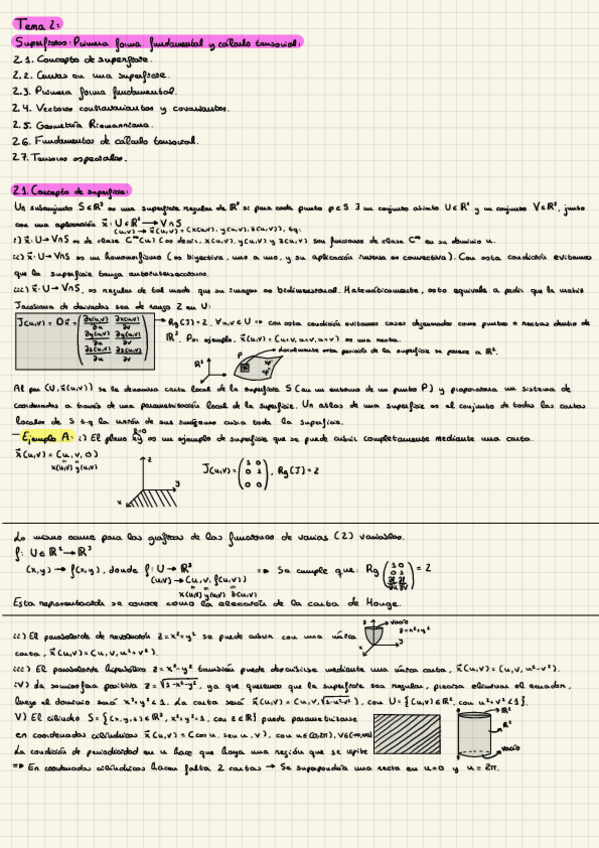 Tema 2:
Superficies: Primera forma fundamental y cálculo tensorial:
2.1. Concepto de superficie.
2.2. Curvas en una superficie.
2.3. Primera forma fundamental.
2.4. Vectores contravariantes y covariantes.
2.5. Geometría Riemanniana.
2.6. Fundamentos de cálculo tensorial.
2.7. Tensores especiales.
2.1. Concepto de superficie:
Un subconjunto S∈ℝ³ es una superficie regular de ℝ³ si para cada punto p∈S ∃ un conjunto abierto U∈ℝ² y un conjunto V∈ℝ³, junto
con una aplicación x⃗: U∈ℝ² → V∩S
(u,v) → x⃗(u,v) = (x(u,v), y(u,v), z(u,v)), tq:
i) x⃗: U→V∩S es de clase C^∞(u) (es decir, x(u,v), y(u,v) y z(u,v) son funciones de clase C^∞ en su dominio u.
ii) x⃗: U→V∩S es un homeomorfismo (es bijectiva, uno a uno, y su aplicación inversa es ). Con esta condición evitamos
que la superficie tenga autointersecciones.
iii) x⃗: U→V∩S, es regular de tal modo que su imagen es bidimensional. Matemáticamente, esto equivale a pedir que la matriz
Jacobiana de derivadas sea de rango 2 en U:
J(u,v) = = (∂x(u,v)/∂u ∂x(u,v)/∂v ; ∂y(u,v)/∂u ∂y(u,v)/∂v ; ∂z(u,v)/∂u ∂z(u,v)/∂v) → Rg(J)=2, ∀u,v∈U ⇒ con esta condición evitamos casos degenerados como puntos o rectas dentro de
ℝ³. Por ejemplo, x⃗(u,v) = (u+v, u+v, u+v) es una recta.
P localmente esta película de la superficie se parece a ℝ².
ℝ³
Al par (U, x⃗(u,v)) se le denomina carta local de la superficie S (en un entorno de un punto P) y proporciona un sistema de
coordenadas a través de una parametrización local de la superficie. Un atlas de una superficie es el conjunto de todas las cartas
locales de S t.q la unión de sus imágenes cubra toda la superficie.
z=0
- Ejemplo A: i) El plano xy es un ejemplo de superficie que se puede cubrir completamente mediante una carta.
x⃗(u,v) = (u, v, 0)
x(u,v) y(u,v)
z
y
x
J(u,v) = (1 0 ; 0 1 ; 0 0), Rg(J)=2
Lo mismo ocurre para las gráficas de las funciones de varias (2) variables.
f: U∈ℝ²→ℝ³
(x,y) → f(x,y), donde f: U→ℝ³
(u,v) → (u, v, f(u,v))
x(u,v) y(u,v) z(u,v)
⇒ Se cumple que: Rg (1 0 ; 0 1 ; ∂f/∂u ∂f/∂v) = 2
Esta representación se conoce como la elección de la carta de Monge.
ii) El paraboloide de revolución z=x²+y² se puede cubrir con una única
carta, x⃗(u,v) = (u, v, u²+v²).
z vacío
z=x²+y²
y
x
iii) El paraboloide hiperbólico z=x²-y² también puede describirse mediante una única carta, x⃗(u,v) = (u, v, u²-v²).
iv) La semiesfera positiva z=√(1-x²-y²), ya que queremos que la superficie sea regular, precisa eliminar el ecuador,
luego el dominio será x²+y²<1. La carta será x⃗(u,v) = (u, v, √(1-u²-v²)), con U={(u,v)∈ℝ², con u²+v²<1}.
V) El cilindro S={(x,y,z)∈ℝ³, x²+y²=1, con z∈ℝ} puede parametrizarse
en coordenadas cilíndricas x⃗(u,v) = (cos u, sen u, v), con u∈(0,2π), v∈(-∞,∞)
La condición de periodicidad en u hace que haya una región que se repite
⇒ En coordenadas cilíndricas hacen falta 2 cartas → Se superpondría una recta en u=0 y u=2π.
ℝ³
ℝ²
vacío